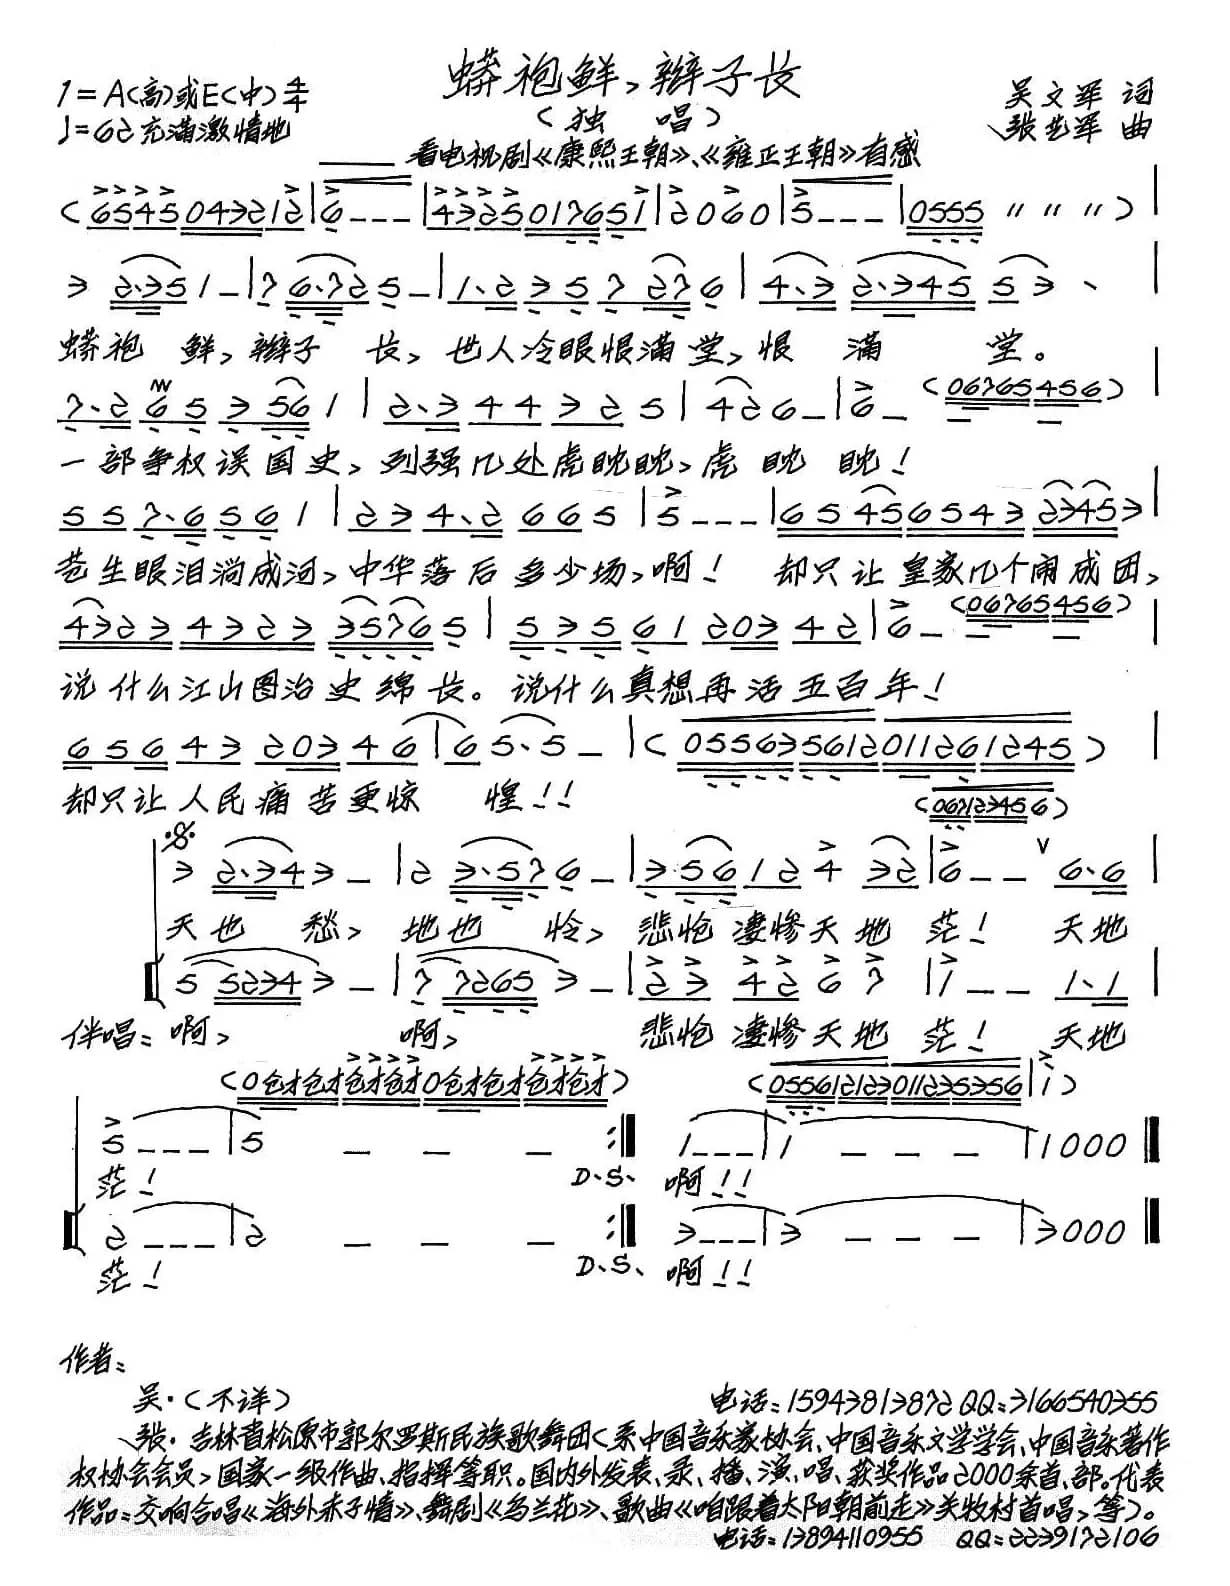 蟒袍鲜,辫子长
1=A(高)或E(中) 4/4
(独 唱)
吴文军 词
♩=62 充满激情地
张艺军 曲
——看电视剧《康熙王朝》、《雍正王朝》有感
(6545 043212|6---|4325 017651|2060|5---|0555 〃 〃 〃)|
3 2·35 1-|7 6·725-|1·2 3 5 7 27 6|4·3 2·345 5 3·|
蟒袍 鲜,辫子 长,世人冷眼恨满堂,恨 满 堂。
7·2 6 5 3 56 1|2·3 4 4 3 2 5|4 2 6-|6- (06765456)|
一部争权误国史,列强几处虎眈眈,虎 眈 眈!
5 5 7·6 5 6 1|2 3 4·2 6 6 5|5---|6 5 45 6543 2345 3|
苍生眼泪淌成河,中华落后多少场,啊! 却只让皇家几个闹成团,
4323 4323 3576 5|5 3 5 6 1 203 4 2|6- (06765456)|
说什么江山图治史绵长。说什么真想再活五百年!
6 5 6 4 3 203 4 6|6 5·5-|(05563561201126 1245)|
却只让人民痛苦更惊 惶!!
(067123456)
3 2·34 3-|2 3·57 6-|3·56 1 2 4 32|6-- 6·6|
天地 愁,地也 怜,悲怆凄惨天地茫! 天地
5 5234 3-|7 7265 3-|2 3 4 2 6 7|1-- 1·1|
伴唱:啊, 啊, 悲怆凄惨天地茫! 天地
(0仓才仓才仓才仓才0仓才仓才仓才仓才)
(055612123011235356|1)
5---|5 - - - :‖ 1---|1 - - -|1000‖
茫! D.S. 啊!!
2---|2 - - - :‖ 3---|3 - - -|3000‖
茫! D.S. 啊!!
作者:
吴·(不详) 电话:15943813872 QQ:3166540355
张·吉林省松原市郭尔罗斯民族歌舞团(系中国音乐家协会、中国音乐文学学会、中国音乐著作
权协会会员,国家一级作曲、指挥等职。国内外发表、录、播、演、唱、获奖作品2000余首、部。代表
作品:交响合唱《海外赤子情》、舞剧《乌兰花》、歌曲《咱跟着太阳朝前走》关牧村首唱,等)。
电话:13894110955 QQ:2239172106